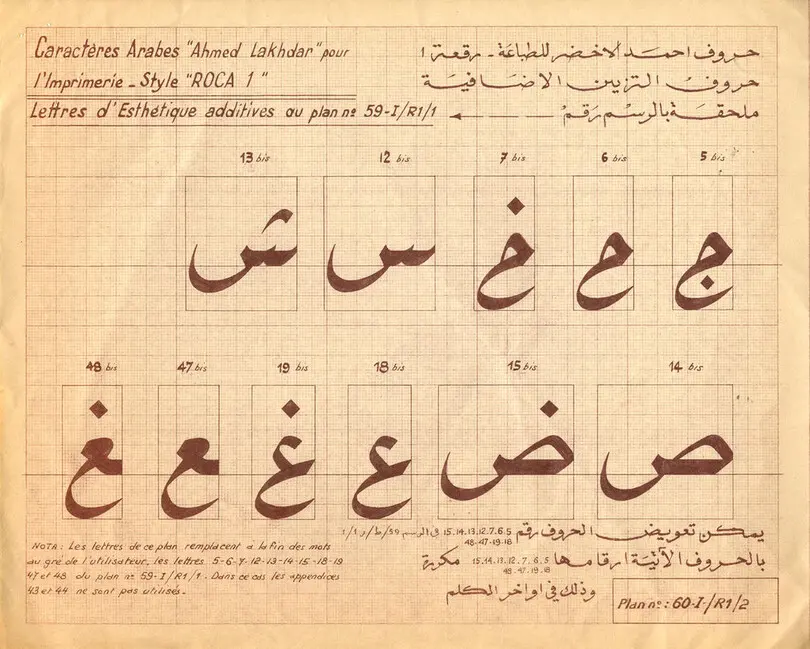 Caractères Arabes "Ahmed Lakhdar" pour
l'Imprimerie - Style "ROCA 1"
Lettres d'Esthétique additives au plan nº 59-I/R1/1
حروف احمد الاخضر للطباعة - رقعة 1
حروف التزيين الاضافية
ملحقة بالرسم رقم
13 bis 12 bis 7 bis 6 bis 5 bis
ش س خ ح ج
48 bis 47 bis 19 bis 18 bis 15 bis 14 bis
غ ع غ ع ض ص
NOTA: Les lettres de ce plan remplacent à la fin des mots
au gré de l'utilisateur, les lettres 5-6-7-12-13-14-15-18-19
47 et 48 du plan nº 59-I/R1/1. Dans ce cas les appendices
43 et 44 ne sont pas utilisés.
يمكن تعويض الحروف رقم 15.14.13.12.7.6.5 في الرسم
48-47-19-18
بالحروف الآتية ارقامها 15.14.13.12.7.6.5 مكررة
48.47.19.18
وذلك في اواخر الكلم
Plan nº: 60-I-/R1/2